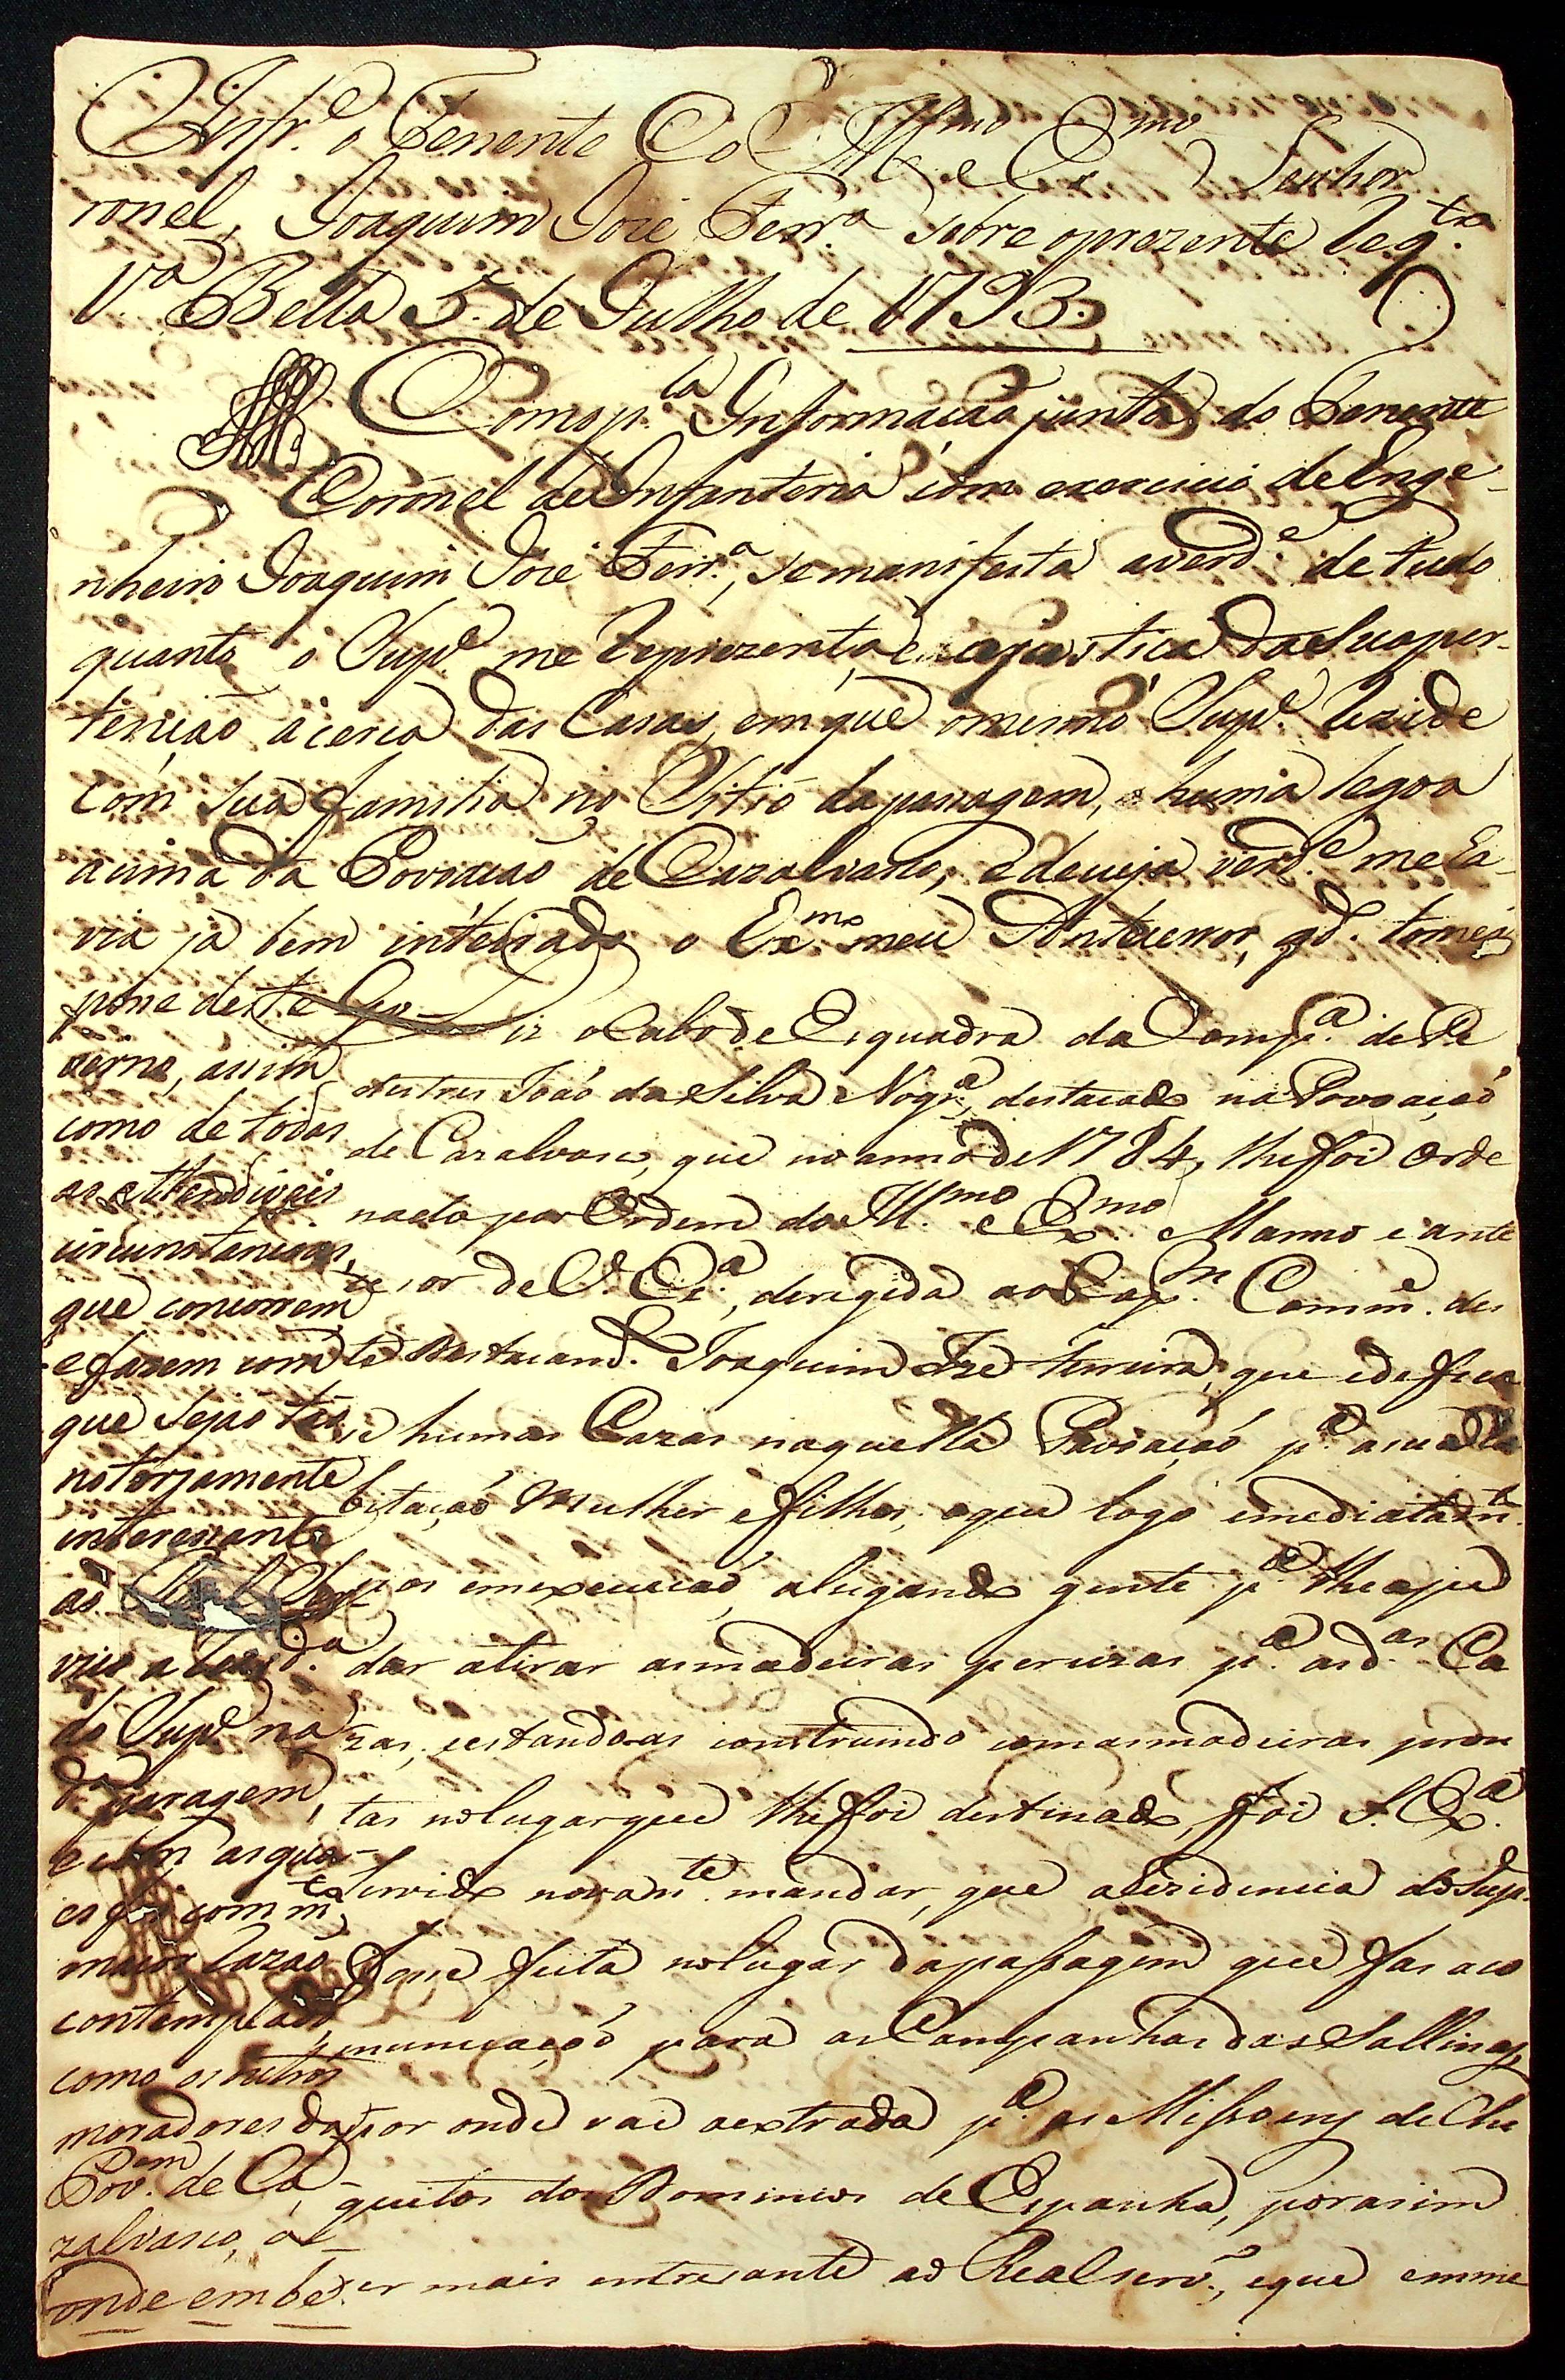 Inf.e o Tenente Co
Ill.mo e Ex.mo Senhor
ronel, Joaquim Jozé Ferr.a sobre oprezente Req.to
V.a Bella 5. de Julho de 1793.
Como p.la Informacaõ junta do Tenente
Coronel de Infanteria com exercicio de Enge-
nheiro Joaquim Jozé Ferr.a, se manifesta averd.e de tudo
quanto o Sup.e me reprezenta, e ajustica da Sua per-
tenćaõ ácerca das Casas, em que omesmo Sup.e rezide
com sua familia no Sitio da passagem, huma legoa
acima da Povoacaõ de Cazalvasco, e de cuja verd.e me ha-
via já bem inteirado o Ex.mo meu Antecessor, qd.o tomei
posse deste Go-
verno, assim
como de todas
as attendiveis
circunstancias,
que concorrem
e fazem com
que seja taõ
notorjamente
interessante
ao Real Ser-
viço a rezid.a
do Sup.e na
d.a paragem,
e com as quaes
es foi com m.ta
maior razaõ
contemplado
como os outros
moradores da
Pov.am de Ca-
zalvasco, al-
onde em be-
Diz o Cabo de Esquadra da Comp.a de Pe
destres Joaõ da Silva Nogr.a, destacado na Povoaçaõ
de Cazalvasco, que no anno de 1784, lhe foi Orde
nado por Ordem do Ill.mo e Ex.mo Manno e ante
cesor de V. Ex.a, derigida ao Cap.m Comm.e des
te Destacam.to Joaquim Joze Ferreira, que edefica
se humas Cazas naquella Povoaçaõ p.a a sua Ha
bitaçaõ Mulher e filhos, oque logo emediatam.te
pos em execucaõ, alugando gente p.a lhe aju
dar atirar as madeiras percizas p.a as d.as Ca
zas; eestandoas construindo com as madeiras pron
tas no lugar que lhe foi destinado, foi S. Ex.a
servido novam.te mandar, que a Rezidencia do Sup.e
fose feita no lugar da passagem que fas a co
municaçaõ para as Campanhas das Sallinas,
por onde vai a extrada p.a as Missoens de Chi
quitos dos Dominios de Espanha, por asim
ser mais entresante ao Real serv.o, eque emme